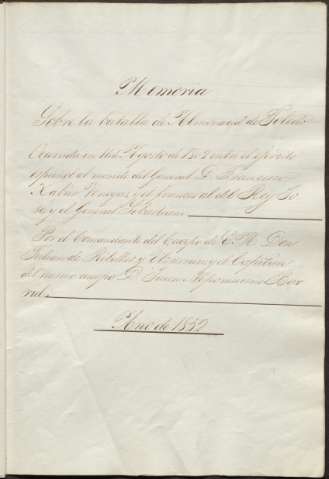 Memoria
Sobre la batalla de Almonacid de Toledo
Ocurrida en 11 de Agosto de 1809 entre el ejército
español al mando del General D. Francisco
Xabier Venegas y el francés al del Rey Jo
sé y el General Sebastiani.
Por el Comandante del Cuerpo de E. M. Don
Julian de y el Capitan
del mismo cuerpo D. Juan Nepomuceno
Año de 1852